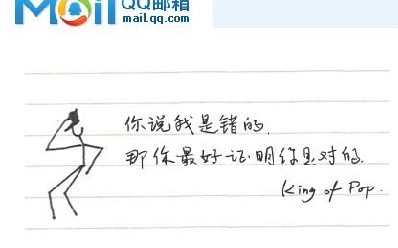 Mail QQ邮箱
mail.qq.com
你说我是错的，
那你最好证明你是对的．
King of Pop．